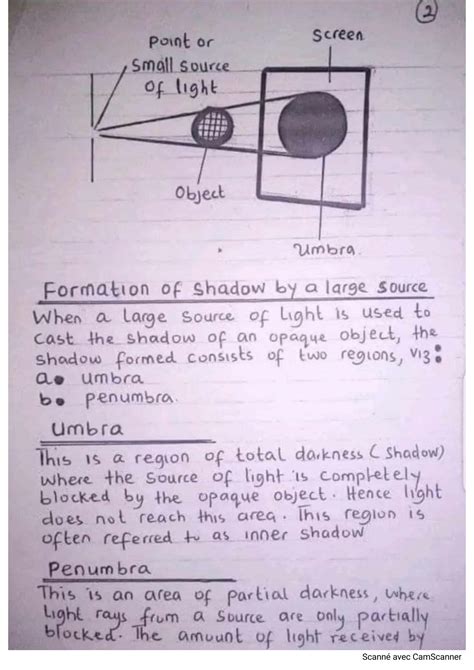 2
Point or
Small source
Of light
Screen
Object
Umbra
Formation of shadow by a large source
When a large source of light is used to
cast the shadow of an opaque object, the
shadow formed consists of two regions, viz:
a. umbra
b. penumbra.
Umbra
This is a region of total darkness (shadow)
where the source of light is completely
blocked by the opaque object. Hence light
does not reach this area. This region is
often referred to as inner shadow
Penumbra
This is an area of partial darkness, where
light rays from a source are only partially
blocked. The amount of light received by
Scanné avec CamScanner